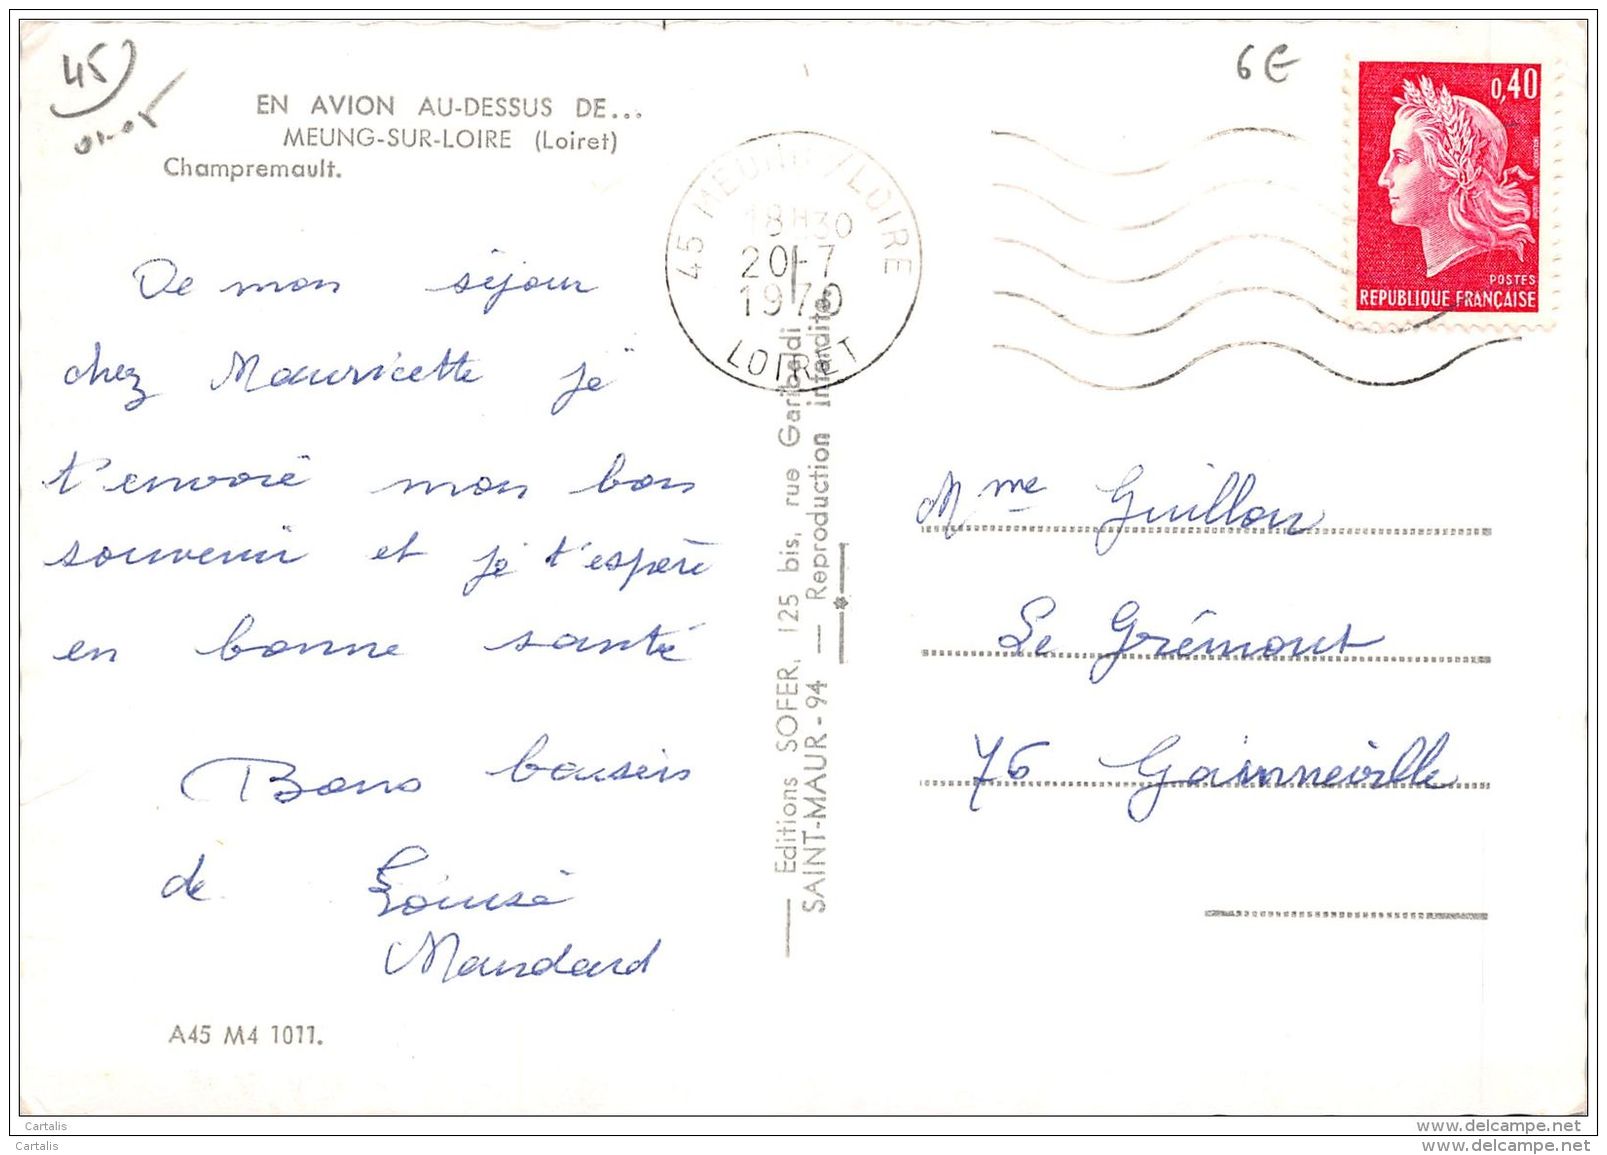 45
01-05
6€
EN AVION AU-DESSUS DE...
MEUNG-SUR-LOIRE (Loiret)
Champremault.
De mon séjour
chez Mauricette je
t'envoie mon bon
souvenir et je t'espère
en bonne santé
Bons baisers
de Louise
Mandard
A45 M4 1011.
45 MEUNG /LOIRE
18H30
20-7
1970
LOIRET
Editions SOFER, 125 bis, rue Garibaldi
SAINT-MAUR - 94 — Reproduction interdite.
0,40
POSTES
REPUBLIQUE FRANÇAISE
Mme Guillon
Le Grémont
76 Gainneville
Cartalis
www.delcampe.net
Cartalis
www.delcampe.net